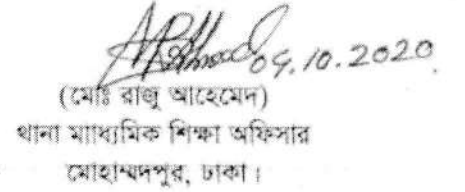 04.10.2020
(মোঃ রাজু আহেমেদ)
থানা মাধ্যমিক শিক্ষা অফিসার
মোহাম্মদপুর, ঢাকা।